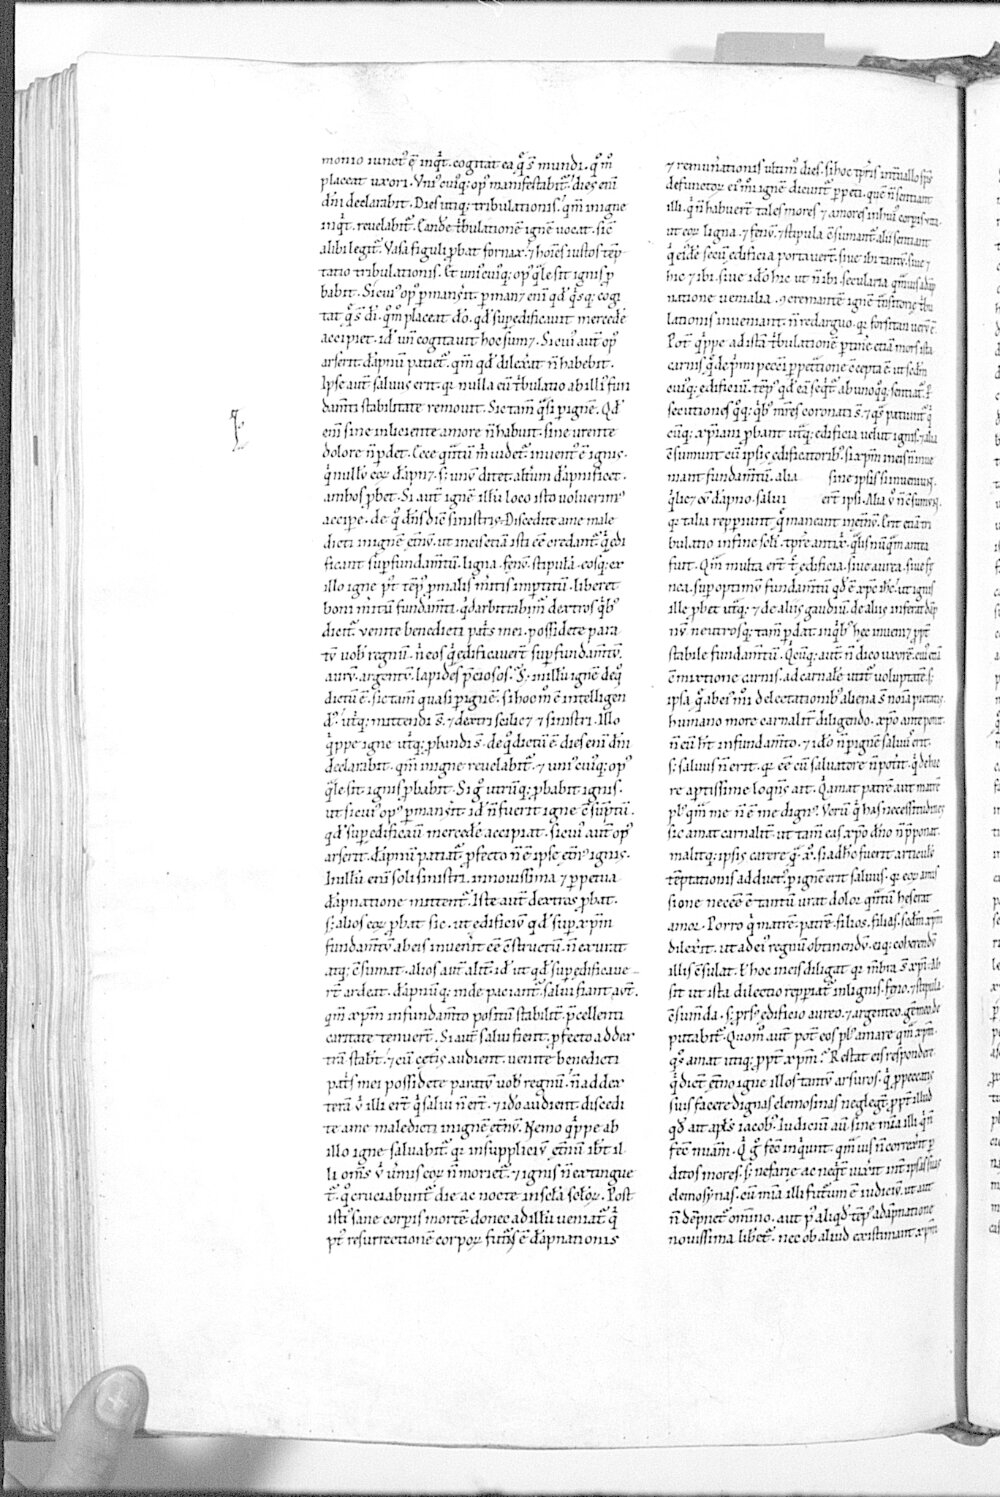 monio iunct᷒ ē inq̇t. cogitat ea q̄ s̄ mundi. qͦm̄
placeat uxori. Vni᷒ cuiq; op᷒ manifestabit̄. dies eni
dn̄i declarabit. Dies utiq; tribulationis. qm̄ in igne
inq̇t. reuelabit̄. Eandē t̄bulationē ignē uocat. sic̄
alibi legit̄. Vasa figuli ꝓbat fornax. ⁊ hoīes iustos tēp
tatio tribulationis. Et uni᷒ cuiq; op᷒ q̄le sit ignis ꝓ
babit. Si cui᷒ op᷒ ꝑmans̄it. ꝑman⁊ enī qd̄ q̇sq; cogi
tat q̄ s̄ dī. qͦm̄ placeat dō. qd̄ suꝑedificauit mercedē
accipiet. id᷒ un̄ cogitauit hoc sum⁊. Si cui᷒ aut̄ op᷒
arserit. dāpnū patiet̄. qm̄ qd̄ dilex̄it n̄ habebit.
Ipse aut̄ saluus erit. qꝛ nulla eū t̄bulatio ab illi᷒ fun
dam̄ti stabilitate remouit. Sic tam̄ q̄si ꝑ ignē. Qd̄
enī sine inliciente amore n̄ habuit. sine urente
dolore n̄ ꝑdet. Ecce q̄ntū m̄ uidet̄. inuent᷒ ē ignis.
q̇ nullū eoꝝ dāpn⁊. s; unū ditet. alt̄um dāpnificet.
ambos ꝓbet. Si aut̄ ignē illū loco isto uoluerim᷒
accipe. de q̄ dn̄s dic̄ sinistris. Discedite a me male
dicti in ignē et̄nū. ut in eis etiā isti eē credant̄. q̇ edi
ficant suꝑ fundam̄tū. ligna. fenū. stipulā. eosq; ex
illo igne p᷒t tēp᷒ ꝑ malis m̄itis inptitū. liberet
boni m̄itū fundam̄ti. qd̄ arbitrabim̄ dextros q̇b᷒
dicit̄. uenite benedicti pat̄s mei. possidete para
tū uob᷒ regnū. n̄ eos q̇ edificauert̄ suꝑ fundam̄tū.
aurū. argentū. lapides p̄ciosos. S; in illū ignē de q̄
dictū ē. sic tam̄ quasi ꝑ ignē. si hoc m̄ ē intelligen
d᷒. ut̄q; mittendi s̄. ⁊ dextri scilic⁊ ⁊ sinistri. Illo
q̇ppe igne ut̄q; ꝓbandi s̄. de q̄ dictū ē. dies enī dn̄i
declarabit. qm̄ in igne reuelabit̄. ⁊ uni᷒ cuiq; op᷒
q̄le sit ignis ꝓbabit. Si q̄ utrūq; ꝓbabit ignis.
ut si cui᷒ op᷒ ꝑmans̄it id n̄ fuerit igne c̄sūptū.
qd̄ suꝑedificauit mercedē accipiat. si cui᷒ aut̄ op᷒
arserit. dāpnū patiat̄. ꝓfecto n̄ ē ipse et̄n᷒ ignis.
In illū enī soli sinistri. in nouissima ⁊ ꝑpetua
dāpnatione mittent̄. Iste aut̄ dextros ꝓbat.
s; alios eoꝝ ꝓbat sic. ut edificiū qd̄ suꝑ xp̄m
fundam̄tū ab eis inuen̄it eē c̄structū. n̄ exurat
atq; c̄sumat. alios aut̄ alit̄. id᷒ ut qd̄ suꝑedificaue
rt̄ ardeat. dāpnūq; inde paciant̄. salui fiant aūt.
qm̄ xp̄m in fundam̄to positū stabilit̄. p̄cellenti
caritate tenuert̄. Si aut̄ salui fient. ꝓfecto ad dex
trā stabt̄. ⁊ cū cet̄is audient. uenite benedicti
pat̄s mei possidete paratū uob᷒ regnū. n̄ ad dex
terā ū illi ert̄ q̇ salui n̄ ert̄. ⁊ idō audient. discedi
te a me maledicti in ignē et̄nū. Nemo q̇ppe ab
illo igne saluabit̄. qꝛ in suppliciū et̄nū ibt̄ il
li om̄s ū umis eoꝝ n̄ moriet̄. ⁊ ignis n̄ extingue
t̄. q̄ cruciabunt̄ die ac nocte in scl̄a scl̄oꝝ. Post
isti᷒ sane corpis mortē donec ad illū ueniat̄ q̇
p᷒t resurrectionē corpoꝝ futur᷒ ē dāpnationis
⁊ remun̄ationis ultim᷒ dies. si hoc tp̄ris int̄uallo sp̄s
defunctoꝝ ei᷒ m̄ ignē dicunt̄ ꝑpeti. quē n̄ sentiant
illi. q̇ n̄ habuert̄ tales mores ⁊ amores in hui᷒ corpis uita.
ut eoꝝ ligna. ⁊ fenū. ⁊ stipula c̄sumant̄. alii sentiant
q̇ ei᷒dē secū edificia portauert̄. siue ibi tantū. siue ⁊
hic ⁊ ibi. siue idō hic ut n̄ ibi. secularia qm̄uis a dāp
natione uenialia. ꝯcremantē ignē t̄nsitorię t̄bu
lationis inueniant. n̄ redarguo. qꝛ forsitan uerū ē.
Pot̄ q̇ppe ad istā t̄bulationē ꝑtinē etiā mors ista
carnis. q̄ de p̄mi peccī ꝑpet̄tione c̄cepta ē. ut scd̄m
cui᷒q; edificiū. tēp᷒ qd̄ eā seqt̄. ab unoq̄q; sentiat̄. ꝑ
secutiones q̄q; q̇b᷒ mr̄es coronati s̄. ⁊ q̄s patiunt̄ q̇
cūq; xp̄iani ꝓbant ut̄q; edificia uelut ignis. ⁊ alia
c̄sumunt cū ipsis edificatorib᷒. si xp̄m in eis n̄ inue
niant fundam̄tū. alia sine ipsis si inueniunt.
q̇ lic⁊ cū dāpno. salui ert̄ ipsi. Alia ū n̄ c̄sumunt.
qꝛ talia repperiunt q̄ maneant in et̄nū. Erit etiā tri
bulatio in fine scl̄i. tp̄re antixp̄i. q̄lis nūq̄m antea
fuit. Qm̄ multa ert̄ t̄ edificia. siue aurea. siue fe
nea. suꝑ optimū fundam̄tū qd̄ ē xp̄c ih̄c. ut ignis
ille ꝓbet ut̄q; ⁊ de aliis gaudiū. de aliis inferat dāp
nū. neutrosq; tam̄ ꝑdat. in q̇b᷒ hec inuen⁊ ꝑpt̄
stabile fundam̄tū. Qcūq; aut̄. n̄ dico uxorē. cui᷒ etiā
c̄mixtione carnis. ad carnalē utit̄ uoluptatē. s;
ipsa q̄ ab ei᷒ m̄i delectationib᷒ aliena s̄ noīa pietatis
humano more carnalit̄ diligendo. xp̄o anteponit.
n̄ eū h̄t in fundam̄to. ⁊ idō n̄ ꝑ ignē salu᷒ erit.
s; saluus n̄ erit. qꝛ eē cū saluatore n̄ pot̄it. q̇ de hac
re aptissime loqn̄s ait. Q̇ amat patrē aut matrē
pl᷒ qm̄ me. n̄ ē me dign᷒. Verū q̇ has necessitudines
sic amat carnalit̄. ut tam̄ eas xp̄o dn̄o n̄ p̄ponat.
malitq; ipsis carere q̄ xp̄o. si ad hc̄ fuerit articulū
tēptationis adduct᷒. ꝑ ignē erit saluus. qꝛ eoꝝ amis
sione necēē ē tantū urat dolor. q̄ntū heserat
amor. Porro q̇ matrē. patrē. filios. filias. scd̄m xp̄m
dilex̄it. ut ad ei᷒ regnū obtinendū. eiq; coherendū
illis c̄sulat. ł hoc in eis diligat qꝛ m̄bra s̄ xp̄i. ab
sit ut ista dilectio repperiat̄ in lignis. feno. ⁊ stipula
c̄sum̄da. s; prs᷒ edificio aureo. ⁊ argenteo. gēmeo de
putabit̄. Quom᷒ aut̄ pot̄ eos pl᷒ amare qm̄ xp̄m.
q᷒s amat utiq; ꝓpt̄ xp̄m. Restat eis respondere
q̇ dict̄ et̄no igne illos tantū arsuros. q̇ ꝓ peccatis
suis facere dignas elemosinas neglegt̄. ꝓpt̄ illud
qd̄ ait apl̄s iacob᷒. Iudiciū aut̄ sine mīa illi q̇ n̄
fec̄ mīam. Q̇ q̄ fec̄ inquiunt. qm̄uis n̄ correx̄it ꝑ
ditos mores. s; nefarie ac neqt̄ uix̄it int̄ ipsas suas
elemosynas. cū mīa illi futurum ē iudiciū. ut aut
n̄ dēpnet̄ om̄ino. aut p᷒ aliqd̄ tēp᷒ a dāpnatione
nouissima libet̄. nec ob aliud existimant xp̄m